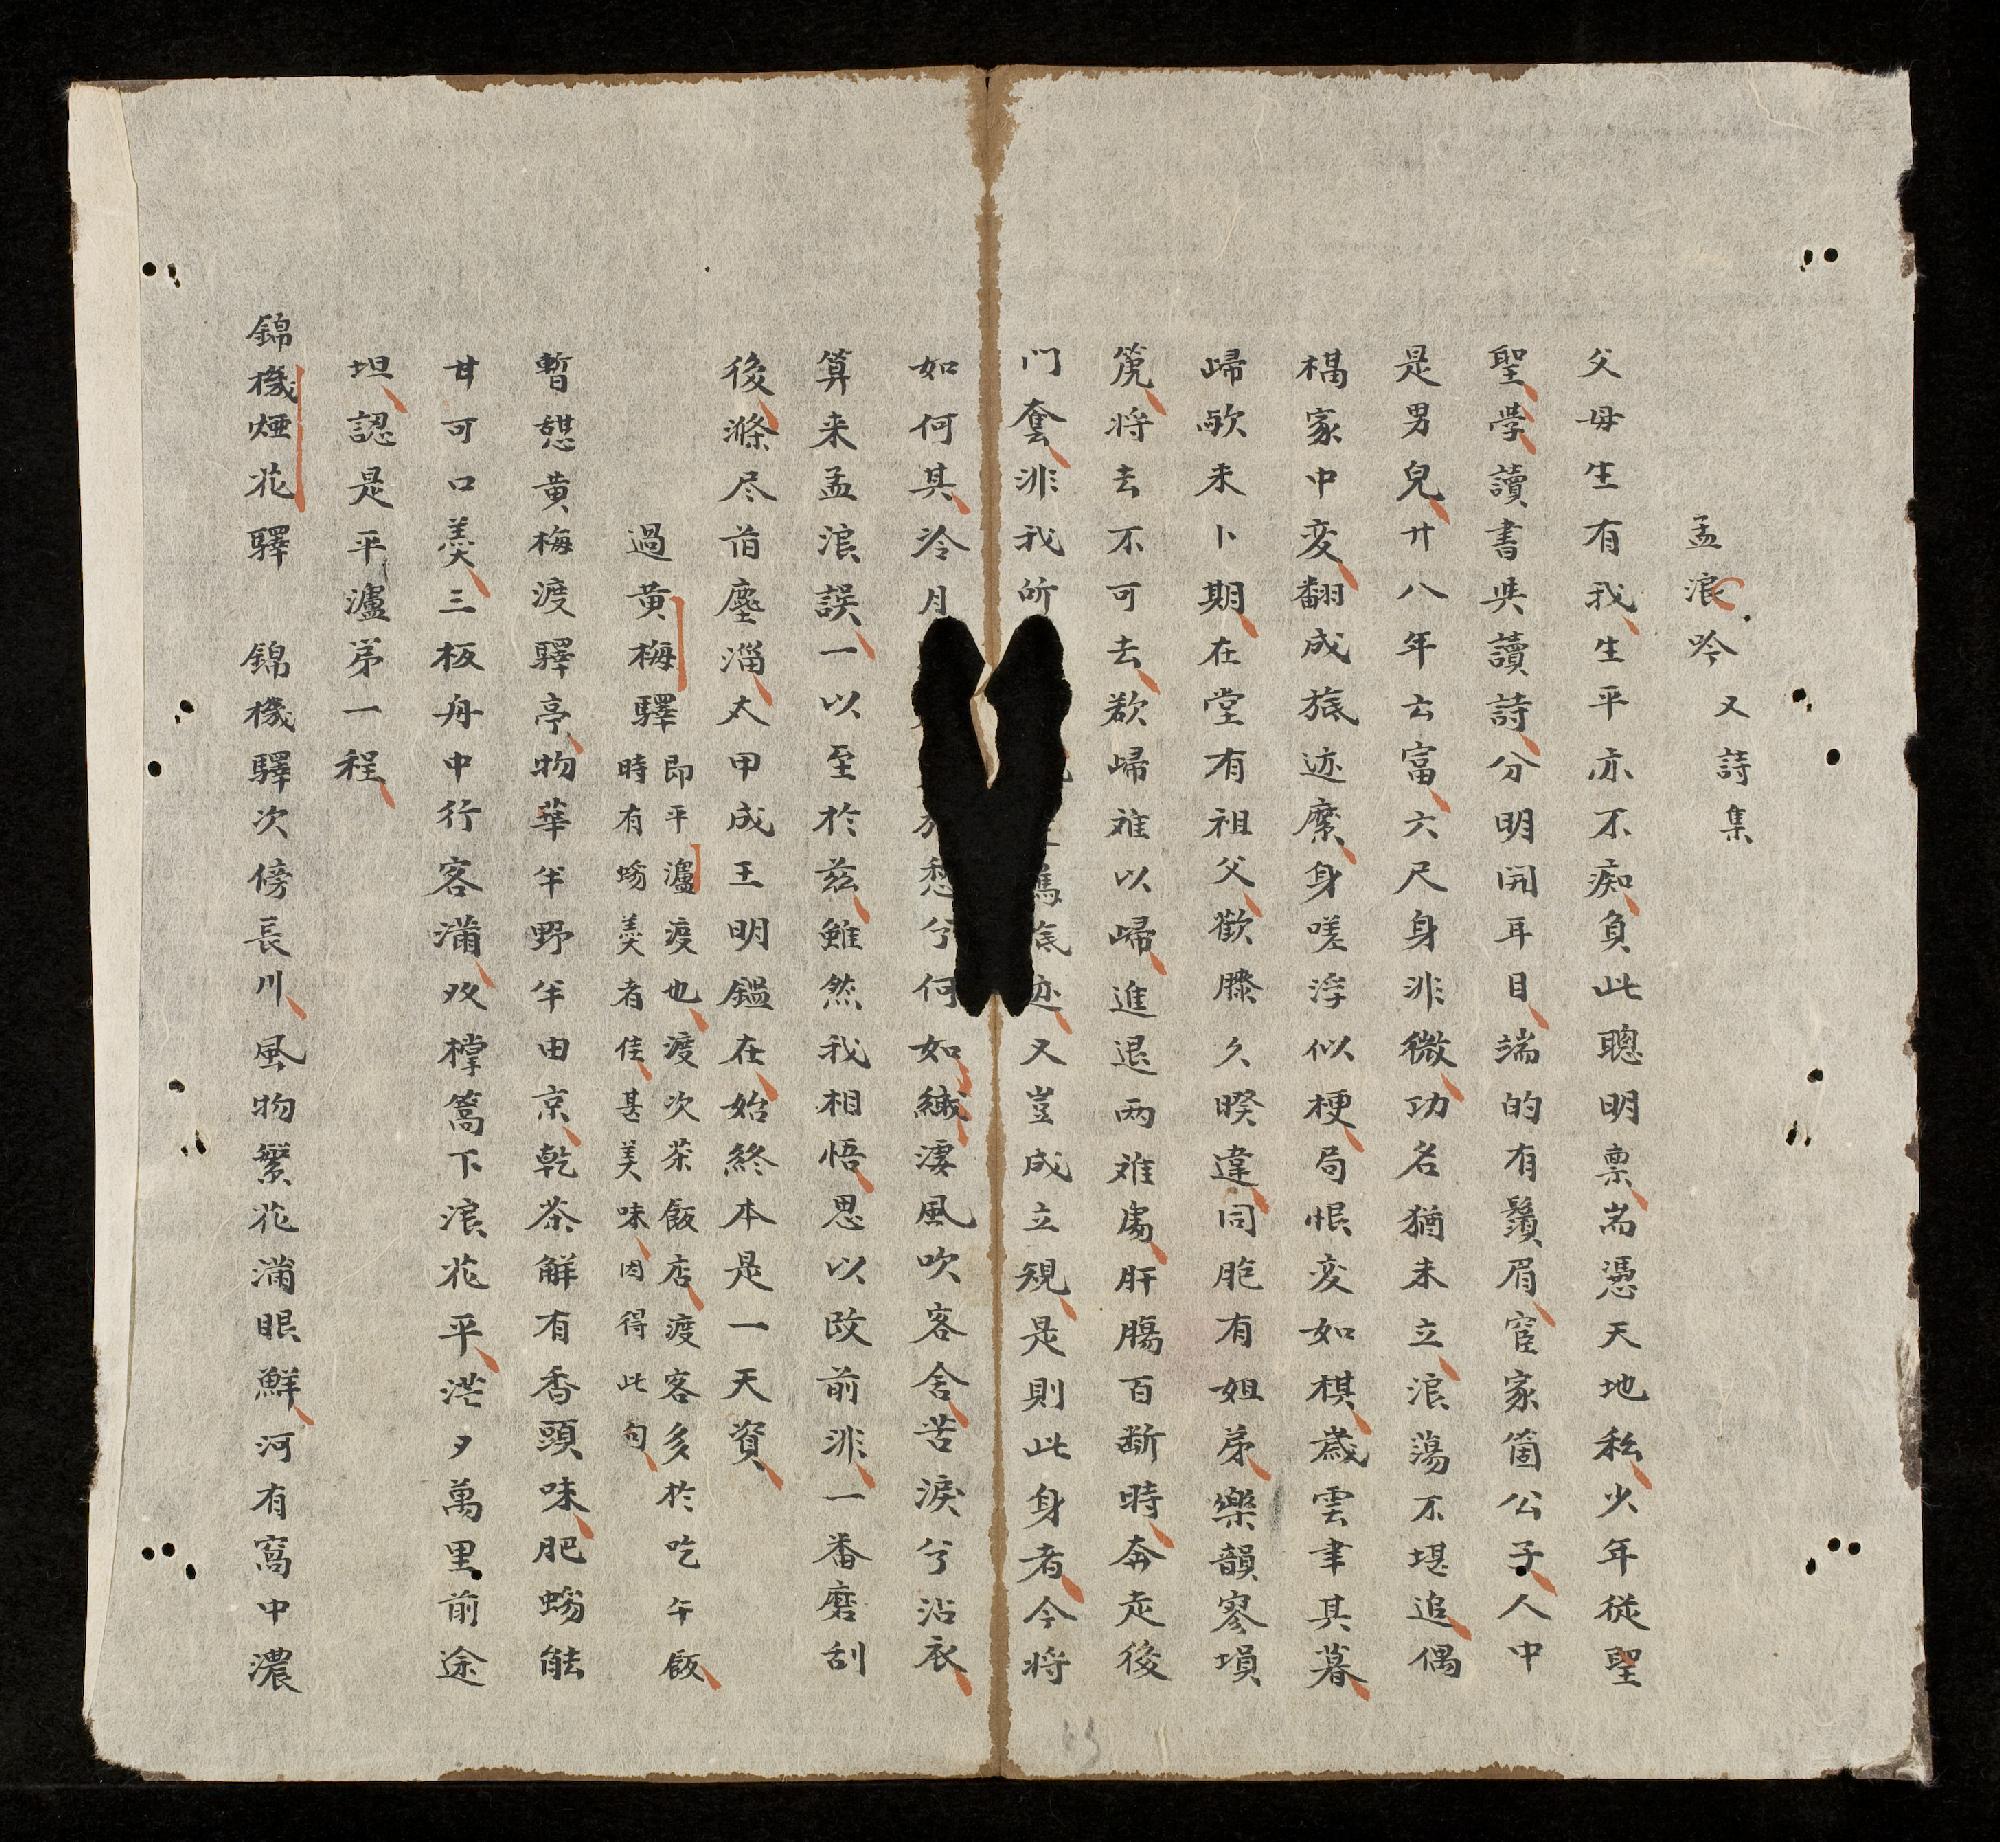 孟浪吟 又詩集
父母生有我生平亦不痴負此聰明禀耑憑天地私少年従聖
聖學讀書吳讀詩分明開耳目端的有鬚眉宦家箇公子人中
是男兒廿八年云富六尺身非微功名猶未立浪蕩不堪追偶
家中变翻成旅迹縻身嗟浮似梗局恨变如棋歲雲聿其暮
歸欤未卜期在堂有祖父歡膝久暌違同胞有姐弟樂韻寥塤
篪將去不可去欲歸难以歸進退两难處肝腸百断時奔走後
门奎非我所迹又豈成立規是則此身者今将
如何其冷月愁兮何如織凄風吹客舍苦淚兮沾衣
算来孟浪誤一以至於兹雖然我相悟思以改前非一番磨刮
後滌尽旹塵淄太甲成王明鑑在始終本是一天資
過黄梅驛 即平瀘渡也渡次茶飯店渡客多於吃午飯
時有蝣羮者佳甚美味因得此句
暫憇黄梅渡驛亭物華半野半由京乾茶解有香頭味肥蝣能
甘可口羮三板舟中行客满双橕篙下浪花平茫夕萬里前途
坦認是平瀘第一程
錦機煙花驛 錦機驛次傍長川風物繁花满眼鮮河有窩中濃